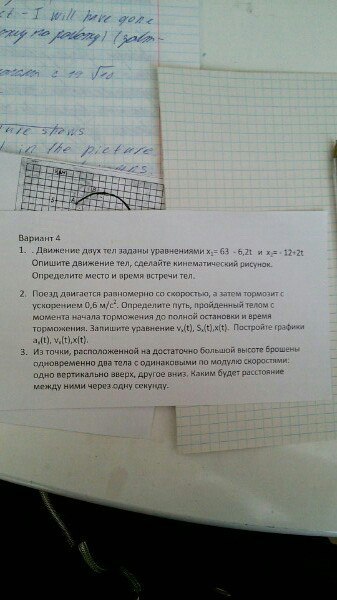 ct - I will have gone
ture shows
in the picture
Вариант 4
1. . Движение двух тел заданы уравнениями x₁= 63 - 6,2t и x₂= - 12+2t
Опишите движение тел, сделайте кинематический рисунок.
Определите место и время встречи тел.
2. Поезд двигается равномерно со скоростью, а затем тормозит с
ускорением 0,6 м/с². Определите путь, пройденный телом с
момента начала торможения до полной остановки и время
торможения. Запишите уравнение vₓ(t), Sₓ(t),x(t). Постройте графики
aₓ(t), vₓ(t),x(t).
3. Из точки, расположенной на достаточно большой высоте брошены
одновременно два тела с одинаковыми по модулю скоростями:
одно вертикально вверх, другое вниз. Каким будет расстояние
между ними через одну секунду.